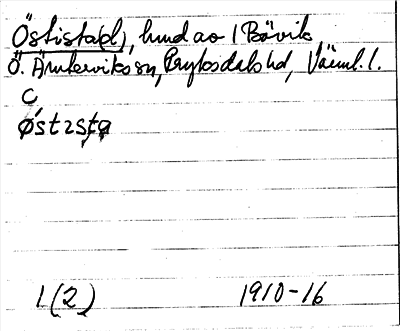 Östista(d), hmd ao 1 Bävik
Ö. Ämterviks sn, Fryksdals hd, Värml. l.
C
østɩsta
1(2) 1910-16